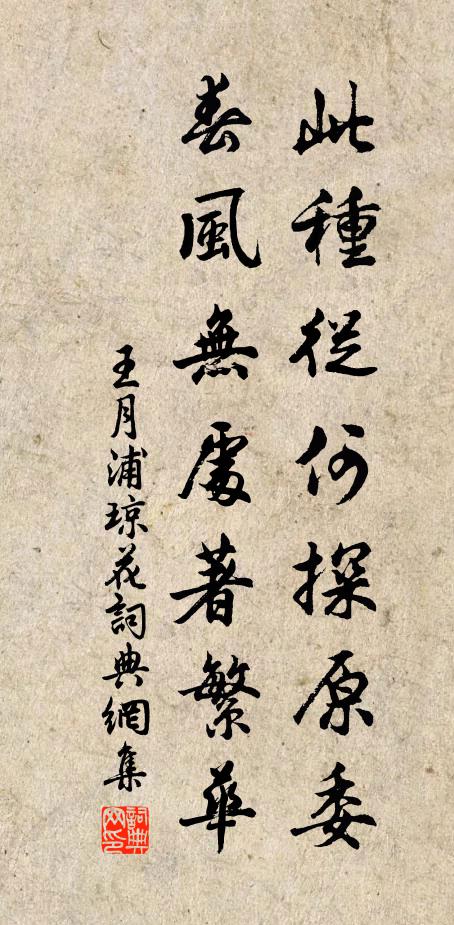 此種從何探原委
春風無處著繁華
王月浦琼花詞典網集
詞典网印